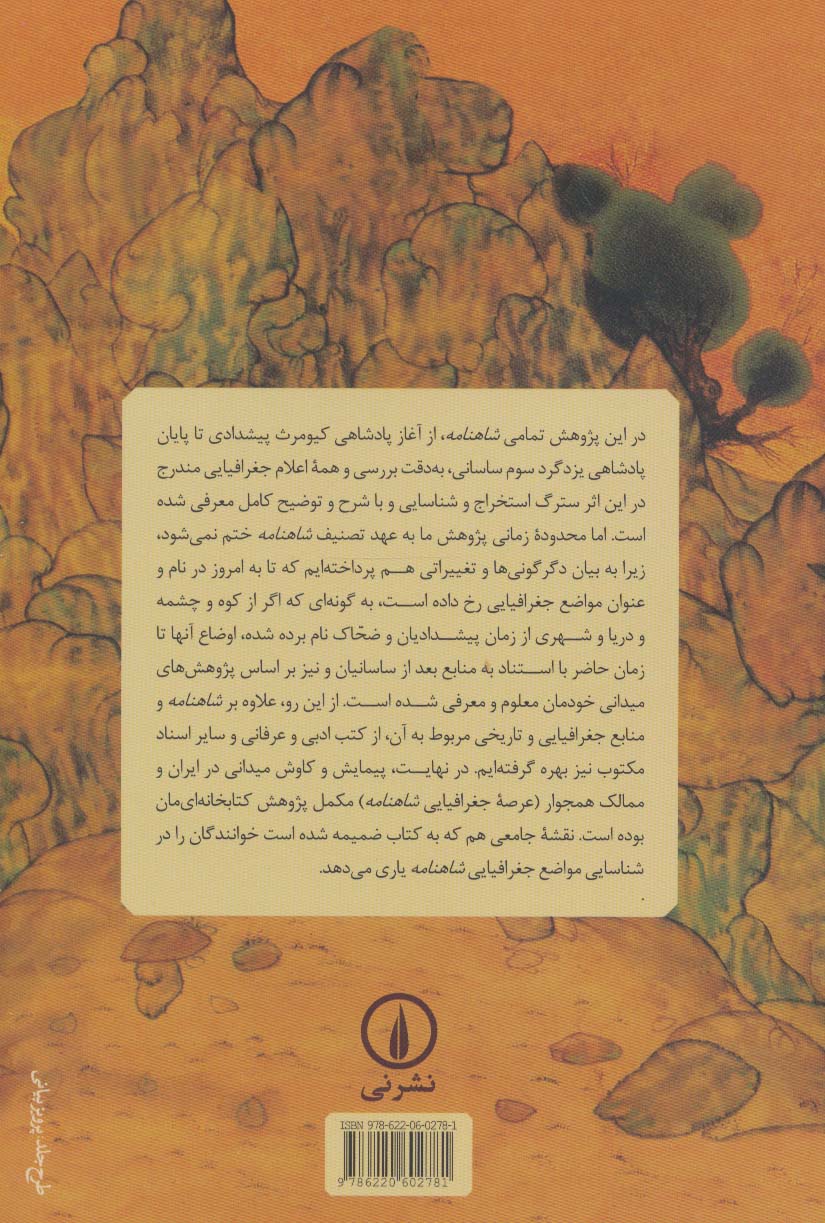 در این پژوهش تمامی شاهنامه، از آغاز پادشاهی کیومرث پیشدادی تا پایان
پادشاهی یزدگرد سوم ساسانی، به‌دقت بررسی و همهٔ اعلام جغرافیایی مندرج
در این اثر سترگ استخراج و شناسایی و با شرح و توضیح کامل معرفی شده
است. اما محدودهٔ زمانی پژوهش ما به عهد تصنیف شاهنامه ختم نمی‌شود،
زیرا به بیان دگرگونی‌ها و تغییراتی هم پرداخته‌ایم که تا به امروز در نام و
عنوان مواضع جغرافیایی رخ داده است، به گونه‌ای که اگر از کوه و چشمه
و دریا و شهری از زمان پیشدادیان و ضحّاک نام برده شده، اوضاع آنها تا
زمان حاضر با استناد به منابع بعد از ساسانیان و نیز بر اساس پژوهش‌های
میدانی خودمان معلوم و معرفی شده است. از این رو، علاوه بر شاهنامه و
منابع جغرافیایی و تاریخی مربوط به آن، از کتب ادبی و عرفانی و سایر اسناد
مکتوب نیز بهره گرفته‌ایم. در نهایت، پیمایش و کاوش میدانی در ایران و
ممالک همجوار (عرصهٔ جغرافیایی شاهنامه) مکمل پژوهش کتابخانه‌ای‌مان
بوده است. نقشهٔ جامعی هم که به کتاب ضمیمه شده است خوانندگان را در
شناسایی مواضع جغرافیایی شاهنامه یاری می‌دهد.
.
نشرنی
ISBN 978-622-06-0278-1
9 786220 602781
طرح جلد: پرویز بیانی